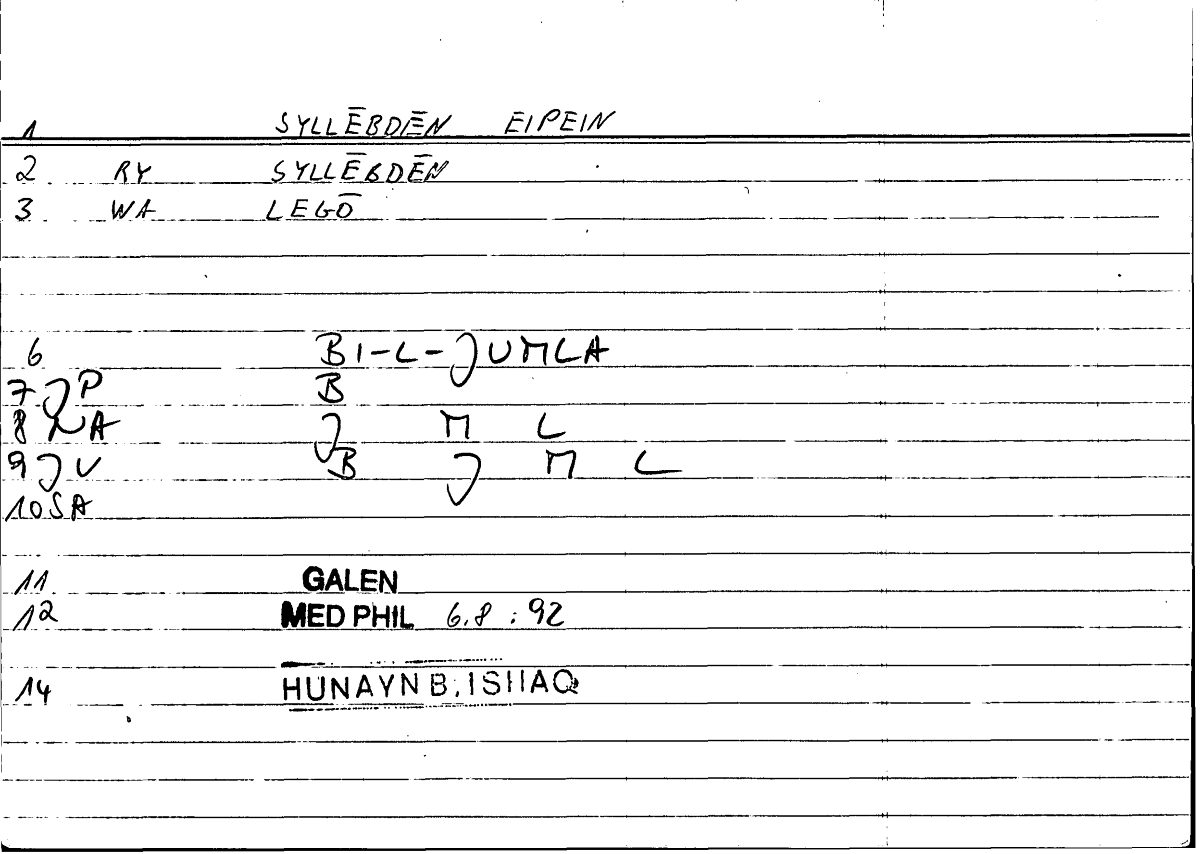 1 SYLLĒBDĒN EIPEIN
2 RY SYLLĒBDĒN
3 WA LEGŌ
6 BI-L-JUMLA
7 JP B
8 NA J M L
9 JU B J M L
10 SA
11 GALEN
12 MED PHIL 6.8 : 92
14 HUNAYN B. ISHAQ